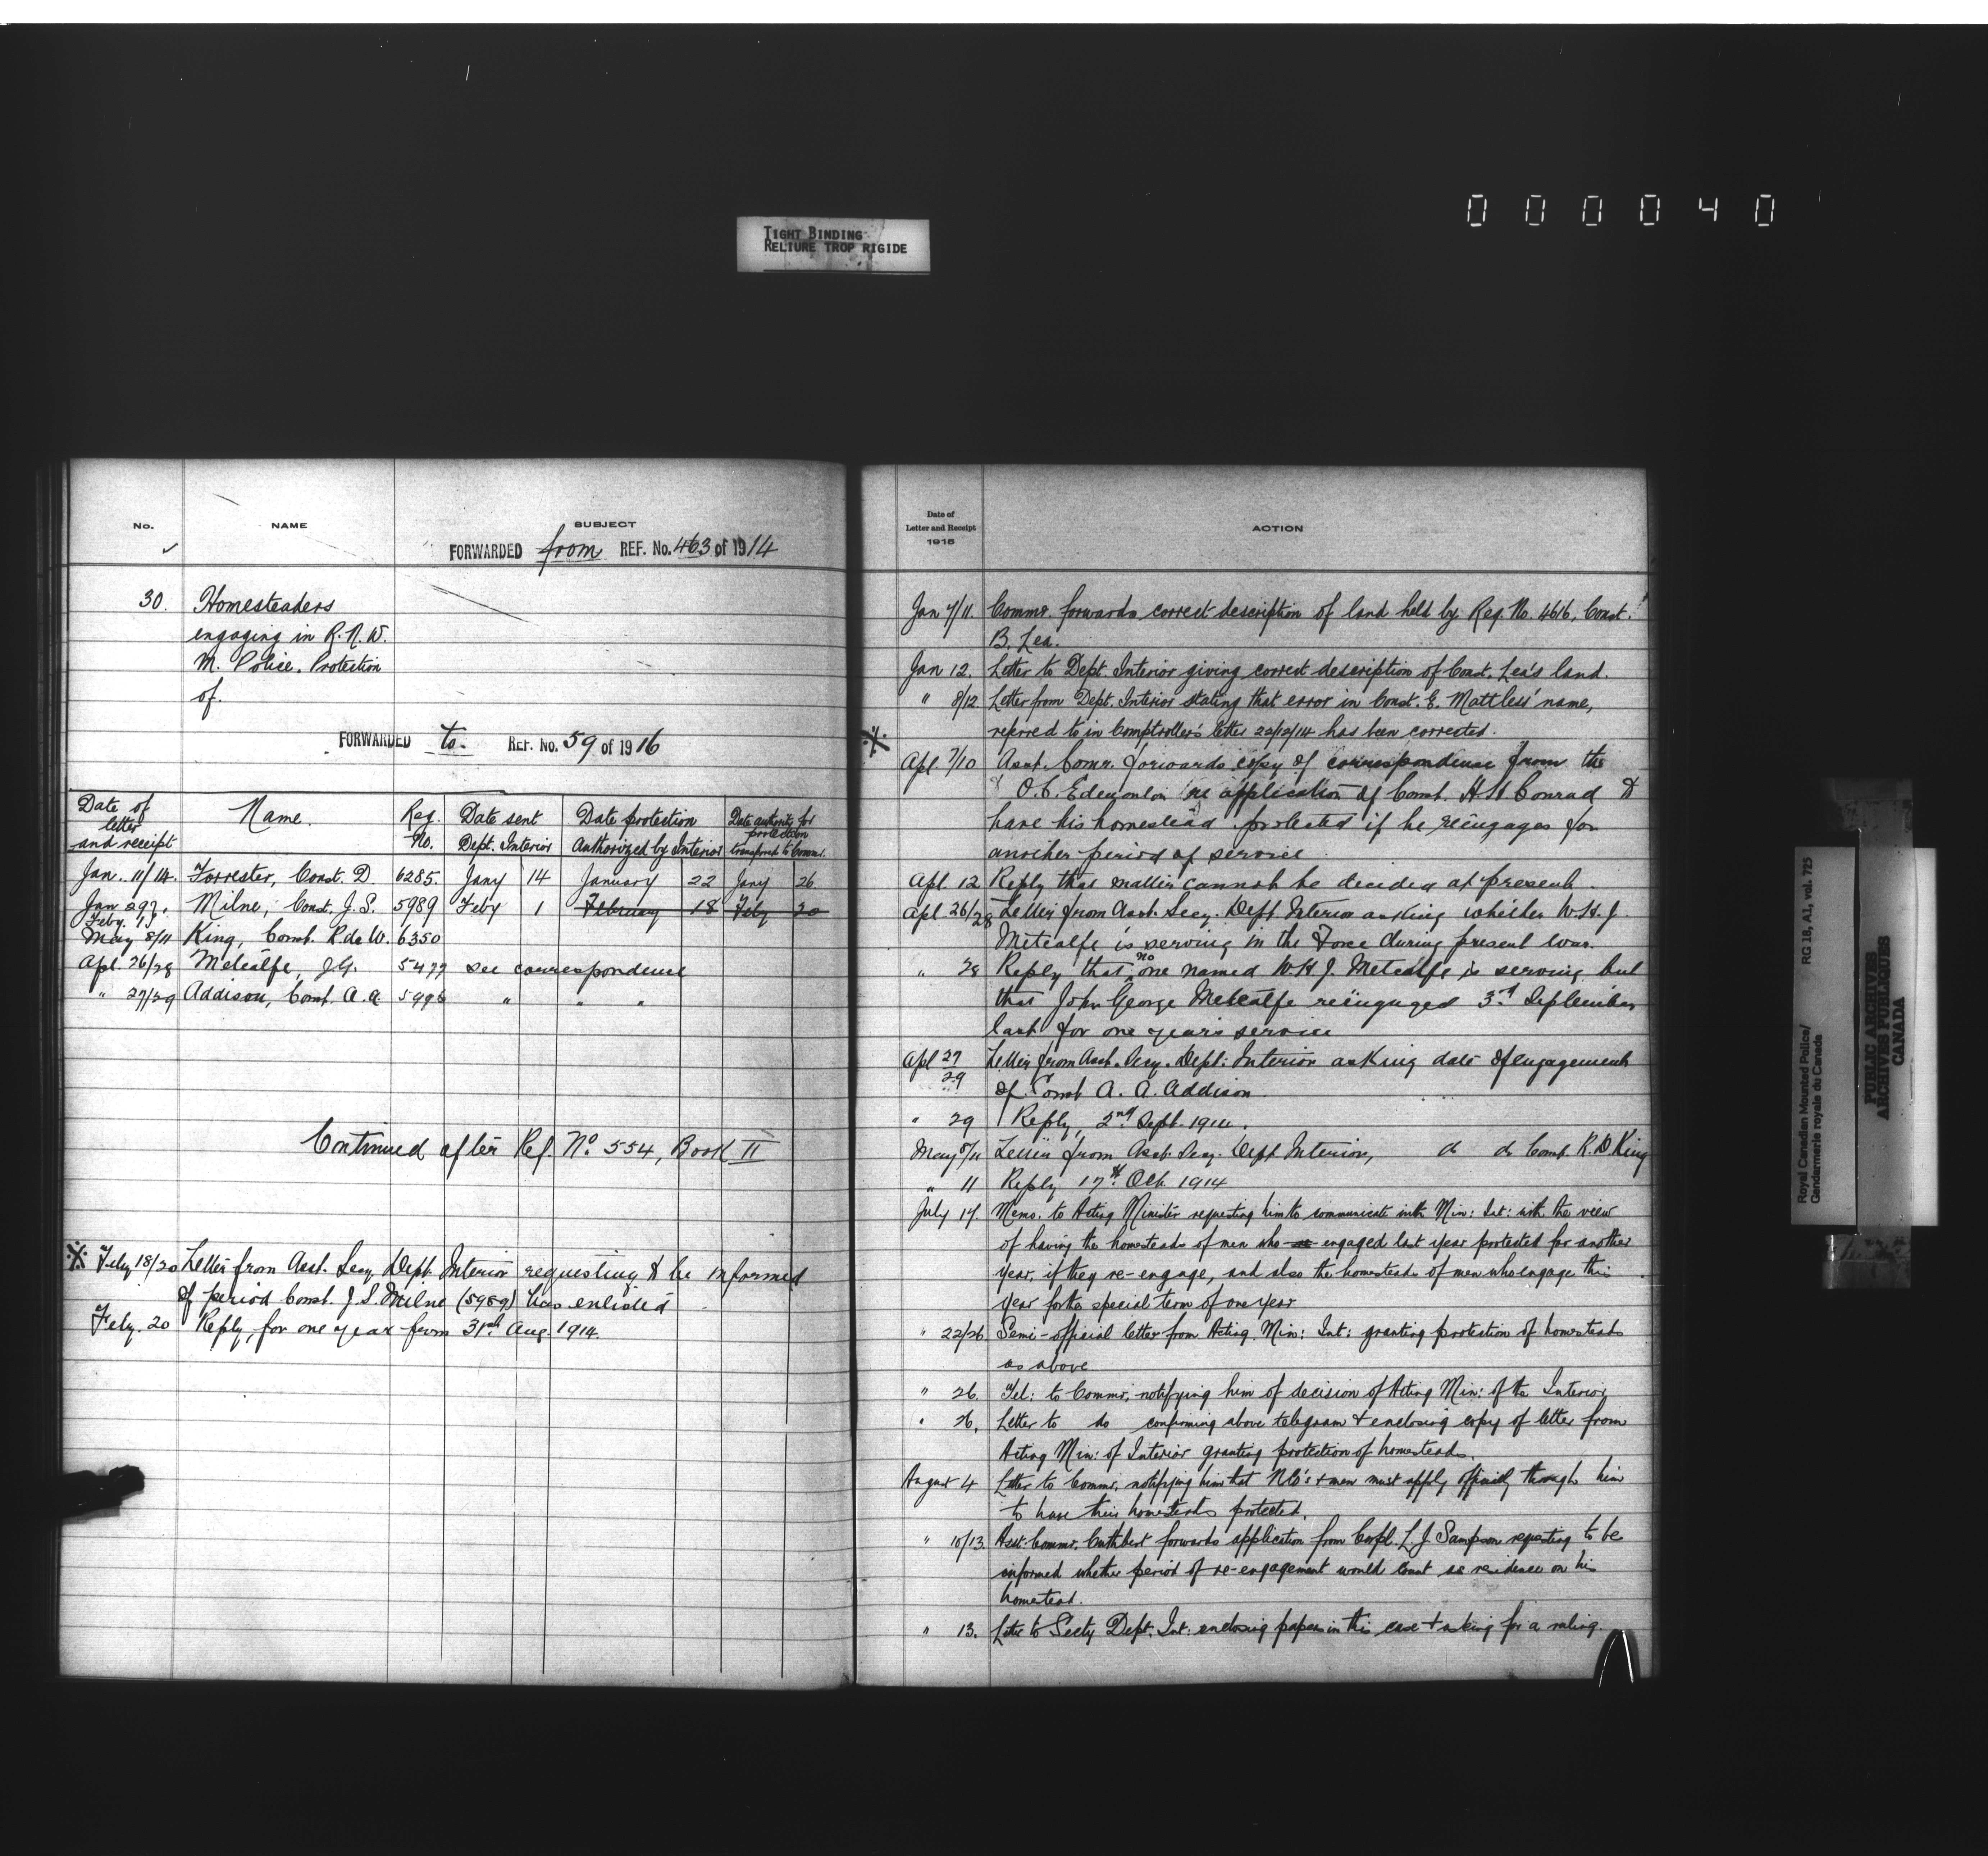 000040
TIGHT BINDING
RELIURE TROP RIGIDE
No. NAME SUBJECT
FORWARDED from REF. No. 463 of 1914
30. Homesteaders
engaging in R.N.W.
M. Police. Protection
of.
FORWARDED to. REF. No. 59 of 1916
Date of letter and receipt Name. Reg. No. Date sent Dept. Interior Date protection Authorized by Interior Date authority for protection transferred to Commr.
Jan. 11/14. Forrester, Const. D. 6285. Jany 14 January 22 Jany 26
Jan 29/Feby. 1 Milne, Const. J. S. 5989 Feby 1 February 18 Feby 20
May 8/11 King, Const. R. de W. 6350
Apl. 26/28 Metcalfe, J.G. 5477 see correspondence
" 27/29 Addison, Const. A. A. 5996 " " "
Continued after Ref. No. 554, Book II
※ Feby 18/20 Letter from Asst. Secy Dept. Interior requesting to be informed
of period Const. J. S. Milne (5989) has enlisted
Feby. 20 Reply, for one year from 31st Aug. 1914.
Date of
Letter and Receipt
1915
ACTION
Jan 7/11. Commr. forwards correct description of land held by Reg. No. 4616, Const.
B. Lea.
Jan 12. Letter to Dept. Interior giving correct description of Const. Lea's land.
" 8/12 Letter from Dept. Interior stating that error in Const. E. Mattless' name,
referred to in Comptroller's letter 22/12/14 has been corrected.
※
Apl. 7/10 Asst. Comr. forwards copy of correspondence from the
O.C. Edmonton re application of Const. H. H. Conrad to
have his homestead protected if he reëngages for
another period of service.
Apl. 12 Reply that matter cannot be decided at present.
Apl. 26/28 Letter from Asst. Secy. Dept Interior asking whether W. H. J.
Metcalfe is serving in the Force during present war.
" 28 Reply that no one named W H J. Metcalfe is serving but
that John George Metcalfe reëngaged 3rd September
last for one year's service
Apl 27/29 Letter from Asst. Secy. Dept. Interior asking date of engagement
of Const A. A. Addison.
" 29 Reply, 2nd Sept. 1914.
May 8/11 Letter from Asst. Secy. Dept Interior, do do Const. R. D. King
" 11 Reply 17th Oct. 1914
July 17. Memo. to Acting Minister requesting him to communicate with Min: Int: with the view
of having the homesteads of men who engaged last year protected for another
year, if they re-engage, and also the homesteads of men who engage this
year for the special term of one year
" 22/26 Semi-official letter from Acting Min: Int: granting protection of homesteads
as above
" 26. Tel: to Commr. notifying him of decision of Acting Min: of the Interior
" 26. Letter to do confirming above telegram & enclosing copy of letter from
Acting Min: of Interior granting protection of homesteads.
August 4 Letter to Commr. notifying him that NCO's & men must apply officially through him
to have their homesteads protected.
" 10/13. Asst: Commr. Cuthbert forwards application from Corpl. L. J. Sampson requesting to be
informed whether period of re-engagement would count as residence on his
homestead.
" 13. Letter to Secty Dept. Int: enclosing papers in this case & asking for a ruling.
Royal Canadian Mounted Police/
Gendarmerie royale du Canada
RG 18, A1, vol. 725
PUBLIC ARCHIVES
ARCHIVES PUBLIQUES
CANADA